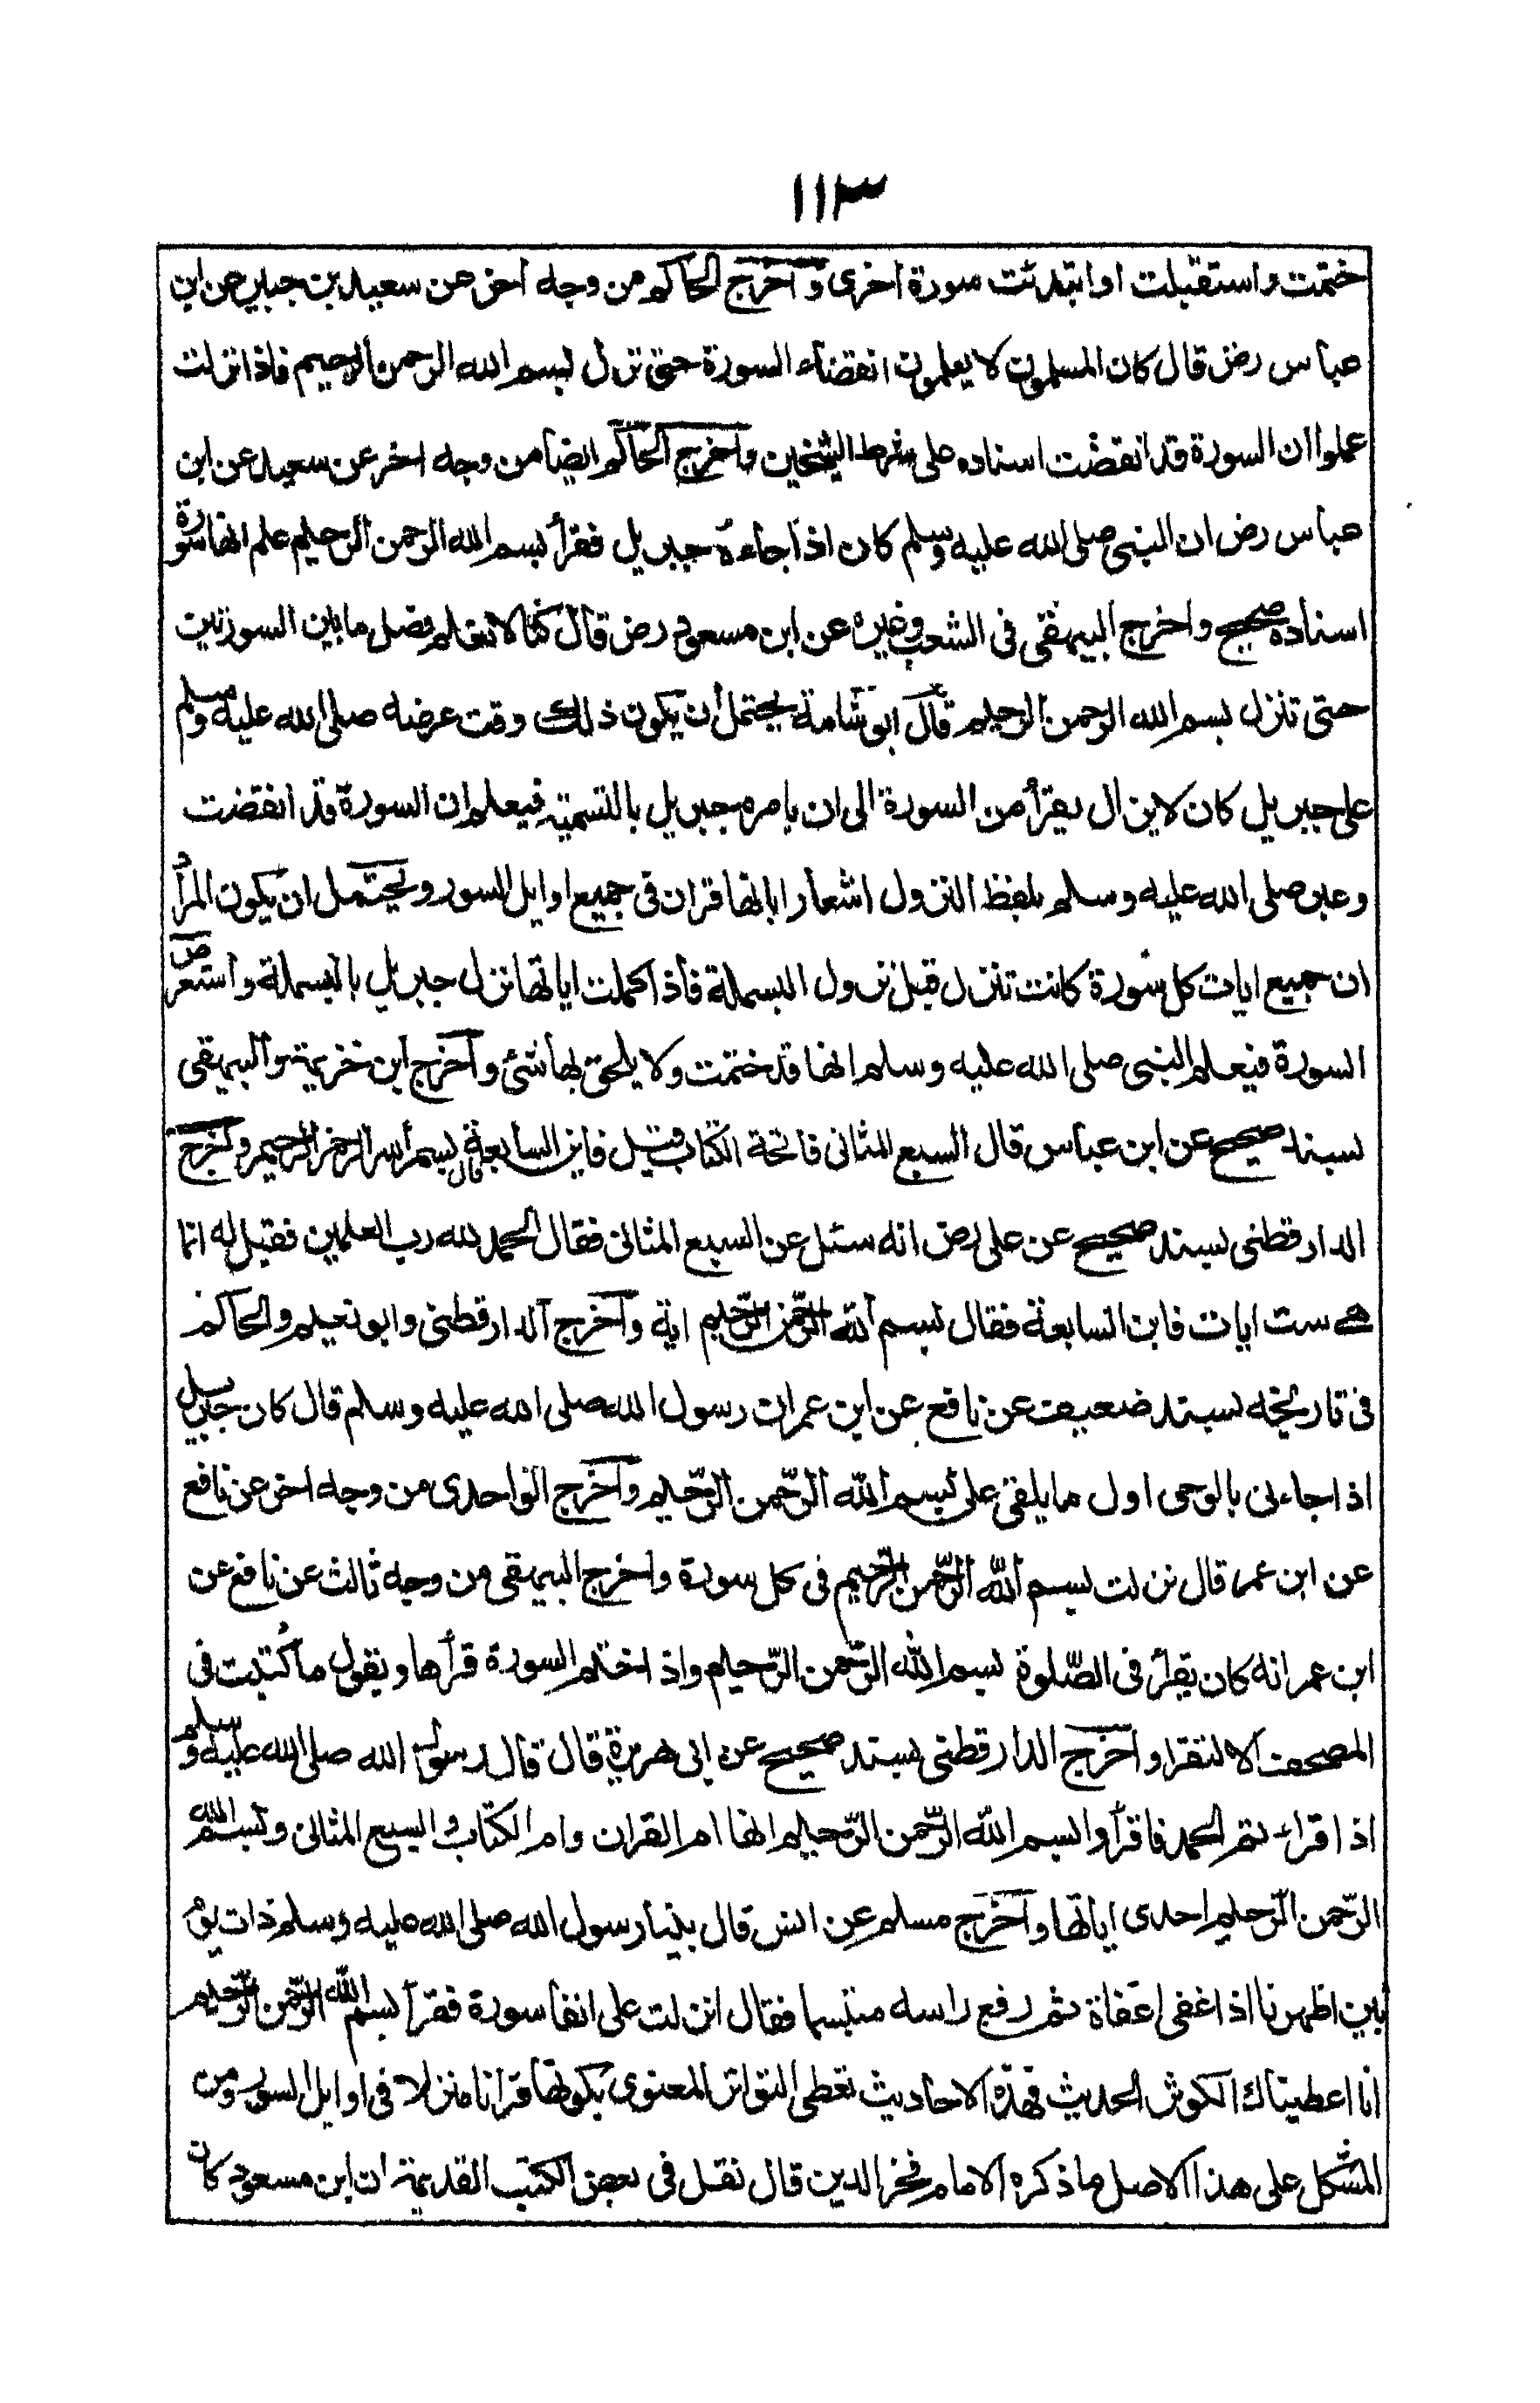 ١١٣
ختمت واستقبلت او ابتدئت سورة اخرى واخرج الحاكم من وجه اخر عن سعيد بن جبير عن ابن
عباس رض قال كان المسلمون لا يعلمون انقضاء السورة حتى تنزل بسم الله الرحمن الرحيم فاذا نزلت
عملوا ان السورة قد انقضت اسناده على شرط الشيخين واخرج الحاكم ايضا من وجه اخر عن سعيد عن ابن
عباس رض ان النبى صلى الله عليه وسلم كان اذا جاءه جبريل فقرأ بسم الله الرحمن الرحيم علم انها سورة
اسناده صحيح واخرج البيهقى فى الشعب وغيره عن ابن مسعود رض قال كنا لا نعلم فصل ما بين السورتين
حتى تنزل بسم الله الرحمن الرحيم قال ابو شامة يحتمل أن يكون ذلك وقت عرضه صلى الله عليه وسلم
على جبريل كان لا يزال يقرأ من السورة الى ان يامره جبريل بالتسمية فيعلم ان السورة قد انقضت
وعبر صلى الله عليه وسلم بلفظ النزول اشعارا بانها قران فى جميع اوايل السور ويحتمل ان يكون المراد
ان جميع ايات كل سورة كانت تنزل قبل نزول البسملة فاذا كملت اياتها نزل جبريل بالبسملة واستعرض
السورة فيعلم النبى صلى الله عليه وسلم انها قد ختمت ولا يلحق بها شئ واخرج ابن خزيمة والبيهقى
بسند صحيح عن ابن عباس قال السبع المثانى فاتحة الكتاب قيل فاين السابعة قال بسم الله الرحمن الرحيم واخرج
الدارقطنى بسند صحيح عن على رض انه سئل عن السبع المثانى فقال الحمد لله رب العلمين فقيل له انما
هى ست ايات فاين السابعة فقال بسم الله الرحمن الرحيم اية واخرج الدارقطنى وابو نعيم والحاكم
فى تاريخه بسند ضعيف عن نافع عن ابن عمر ان رسول الله صلى الله عليه وسلم قال كان جبريل
اذا جاءنى بالوحى اول ما يلقى على بسم الله الرّحمن الرّحيم واخرج الواحدى من وجه اخر عن نافع
عن ابن عمر قال نزلت بسم الله الرّحمن الرّحيم فى كل سورة واخرج البيهقى من وجه ثالث عن نافع عن
ابن عمر انه كان يقرأ فى الصّلوة بسم الله الرّحمن الرّحيم واذا ختم السورة قرأها ويقول ما كُتبت فى
المصحف الا لتقرا واخرج الدارقطنى بسند صحيح عن ابى هريرة قال قال رسول الله صلى الله عليه وسلم
اذا قرائتم الحمد فاقرأوا بسم الله الرّحمن الرّحيم انها ام القران وام الكتاب والسبع المثانى وبسم الله
الرّحمن الرّحيم احدى اياتها واخرج مسلم عن انس قال بينا رسول الله صلى الله عليه وسلم ذات يوم
بين اظهرنا اذ اغفى اغفاة ثم رفع راسه متبسما فقال انزلت على انفا سورة فقرأ بسم الله الرّحمن الرّحيم
انا اعطيناك الكوثر الحديث فهذه الاحاديث تعطى التواتر المعنوى بكونها قرانا منزلا فى اوايل السور ومن
المشكل على هذا الاصل ما ذكره الامام فخر الدين قال نقل فى بعض الكتب القديمة ان ابن مسعود كان